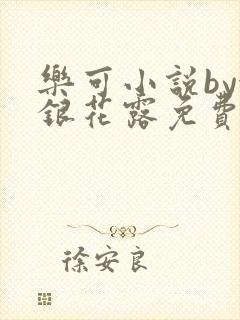 樂可小說by
銀花露免費
徐安良